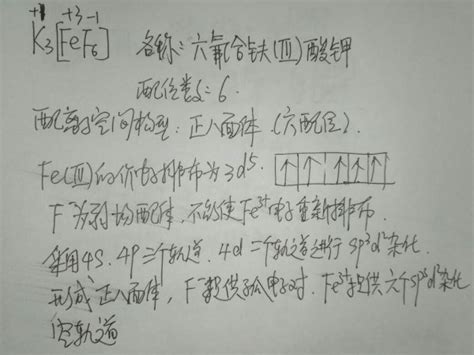 +1 +3 -1
K₃[FeF₆] 名称：六氟合铁(Ⅲ)酸钾
配位数：6.
配离子空间构型：正八面体（六配位）.
Fe(Ⅲ)的价电子排布为3d⁵. ↑ ↑ ↑ ↑ ↑
F⁻为弱场配体，不能使Fe³⁺电子重新排布.
采用4S、4P三个轨道、4d二个轨道进行sp³d²杂化.
形成正八面体，F⁻提供孤电子对.Fe³⁺提供六个sp³d²杂化
空轨道